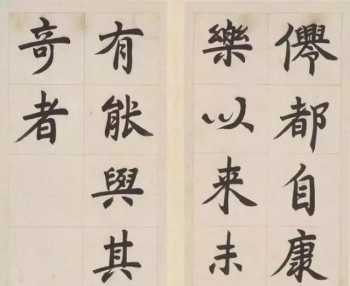 僊都自康
樂以来未
有能與其
奇者